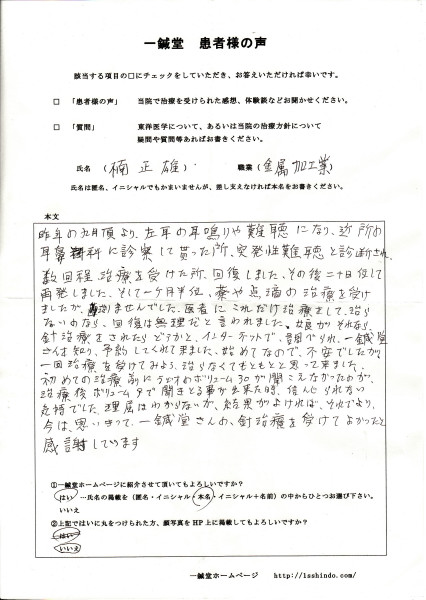 一鍼堂　患者様の声
該当する項目の□にチェックをしていただき、お答えいただければ幸いです。
□　「患者様の声」　当院で治療を受けられた感想、体験談などお聞かせください。
□　「質問」　東洋医学について、あるいは当院の治療方針について
疑問や質問等あればお書きください。
氏名　（楠　正雄）　職業（金属加工業）
氏名は匿名、イニシャルでもかまいませんが、差し支えなければ本名をお書きください。
本文
昨年の九月頃より、左耳の耳鳴りや難聴になり、近所の
耳鼻科に診察して貰った所、突発性難聴と診断され、
数回程治療を受けた所、回復しました、その後二十日位して
再発しました、そして一ヶ月半位、薬や点滴の治療を受け
ましたが、治りませんでした、医者にこれだけ治療をして、治ら
ないのなら、回復は無理だと言われました。娘がそれなら、
針治療をされたらどうかと、インターネットで、調べられ、一鍼堂
さんを知り、予約してくれて来ました、始めてなので、不安でしたが、
一回治療を受けてみよう、治らなくてもともとと思って来ました。
初めての治療前にラジオのボリューム30が聞こえなかったのが、
治療後ボリューム9で聞きとる事が出来た時、信じられない
気持でした、理屈はわからないが、結果がよければ、それでよい、
今は、思いきって、一鍼堂さんの、針治療を受けてよかったと
感謝しています
①一鍼堂ホームページに紹介させて頂いてもよろしいですか？
はい　…氏名の掲載を（匿名・イニシャル・本名・イニシャル＋名前）の中からひとつお選び下さい。
いいえ
②上記ではいに丸をつけられた方、顔写真をHP上に掲載してもよろしいですか？
はい
いいえ
一鍼堂ホームページ　http://1sshindo.com/